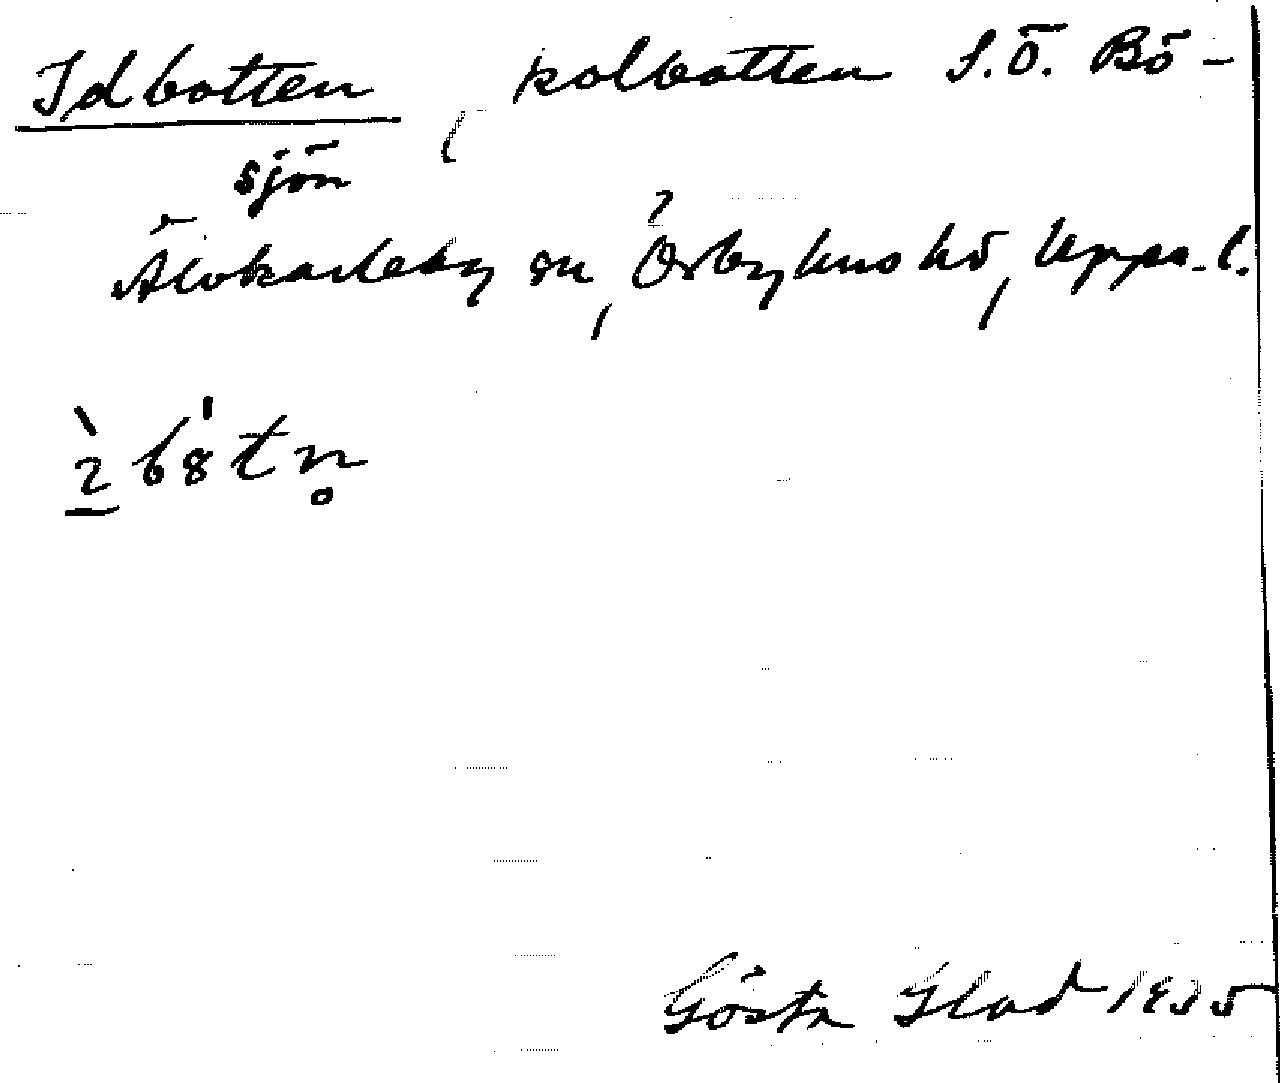 Idbotten, kolbotten S.Ö. Bö-
sjön
Älvkarleby sn, Örbyhus hd, Upps. l.
Gösta Glad